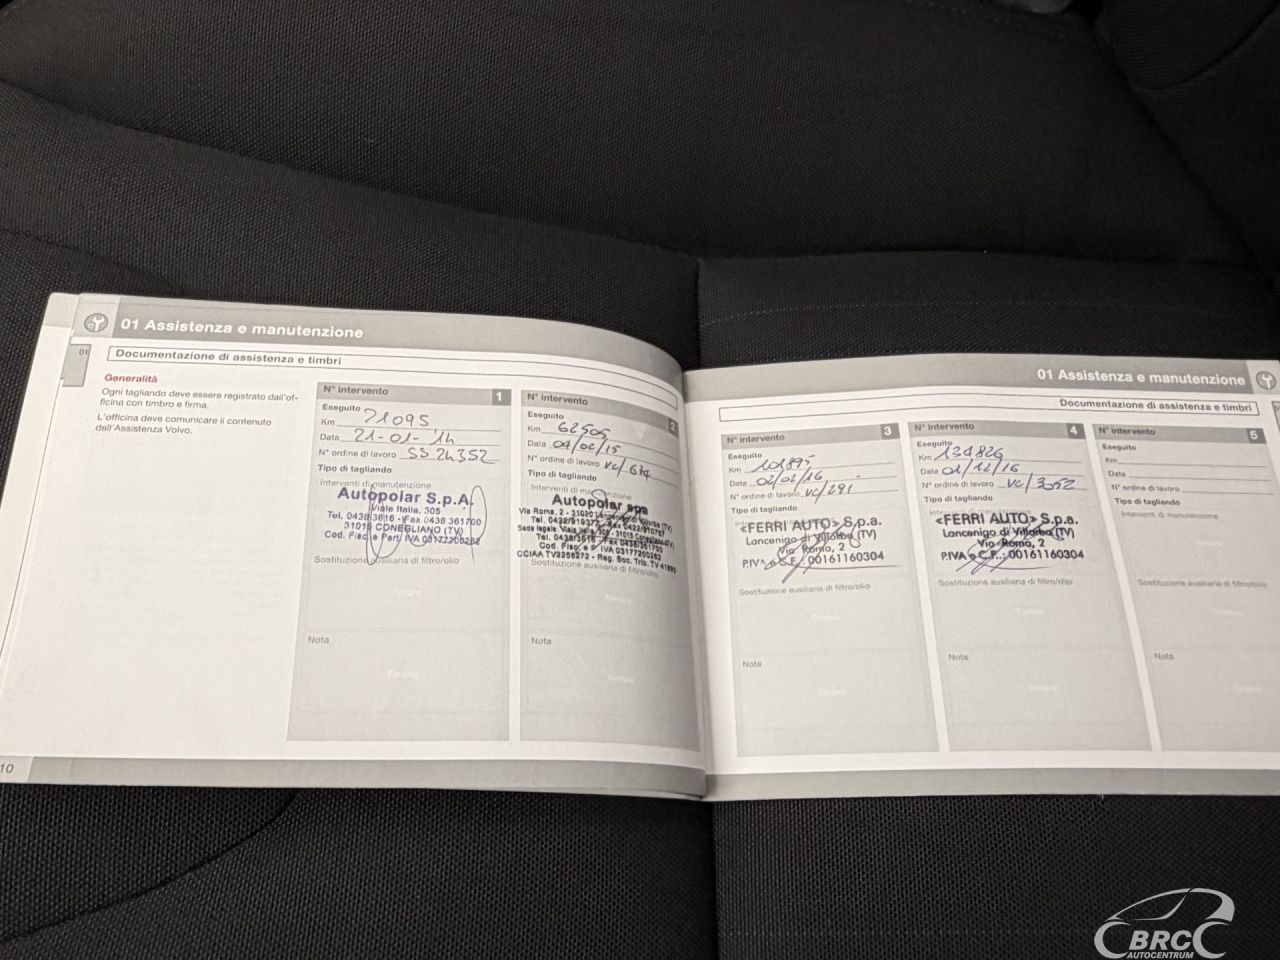 01 Assistenza e manutenzione
01
Documentazione di assistenza e timbri
Generalità
Ogni tagliando deve essere registrato dall'of-
ficina con timbro e firma.
L'officina deve comunicare il contenuto
dell'Assistenza Volvo.
N° intervento 1
Eseguito
Km 21095
Data 21-01-'14
N° ordine di lavoro SS 24352
Tipo di tagliando
Interventi di manutenzione
Autopolar S.p.A.
Viale Italia, 305
Tel. 0438 3616 - Fax 0438 361700
31015 CONEGLIANO (TV)
Cod. Fisc. e Part. IVA 03177200262
Sostituzione ausiliaria di filtro/olio
Timbro
Nota
Timbro
N° intervento 2
Eseguito
Km 62505
Data 04/02/15
N° ordine di lavoro VC/674
Tipo di tagliando
Interventi di manutenzione
Autopolar spa
Via Roma, 2 - 31020
Tel. 0422/919377 - Fax 0422/910757
Sede legale: Viale Italia, 305 - 31015 Conegliano (TV)
Tel. 0438/3616 - Fax 0438/361700
Cod. Fisc. e P. IVA 03177200262
CCIAA TV2258272 - Reg. Soc. Trib. TV
Sostituzione ausiliaria di filtro/olio
Timbro
Nota
Timbro
10
01 Assistenza e manutenzione
Documentazione di assistenza e timbri
N° intervento 3
Eseguito
Km 101895
Data 02/02/16
N° ordine di lavoro VC/291
Tipo di tagliando
<FERRI AUTO> S.p.a.
Lancenigo di Villorba (TV)
Via Roma, 2
P.IVA e C.F.: 00161160304
Sostituzione ausiliaria di filtro/olio
Timbro
Nota
Timbro
N° intervento 4
Eseguito
Km 134826
Data 01/12/16
N° ordine di lavoro VC/3052
Tipo di tagliando
<FERRI AUTO> S.p.a.
Lancenigo di Villorba (TV)
Via Roma, 2
P.IVA e C.F.: 00161160304
Sostituzione ausiliaria di filtro/olio
Timbro
Nota
Timbro
N° intervento 5
Eseguito
Km
Data
N° ordine di lavoro
Tipo di tagliando
Interventi di manutenzione
Sostituzione ausiliaria di filtro/olio
Nota
BRC
AUTOCENTRUM